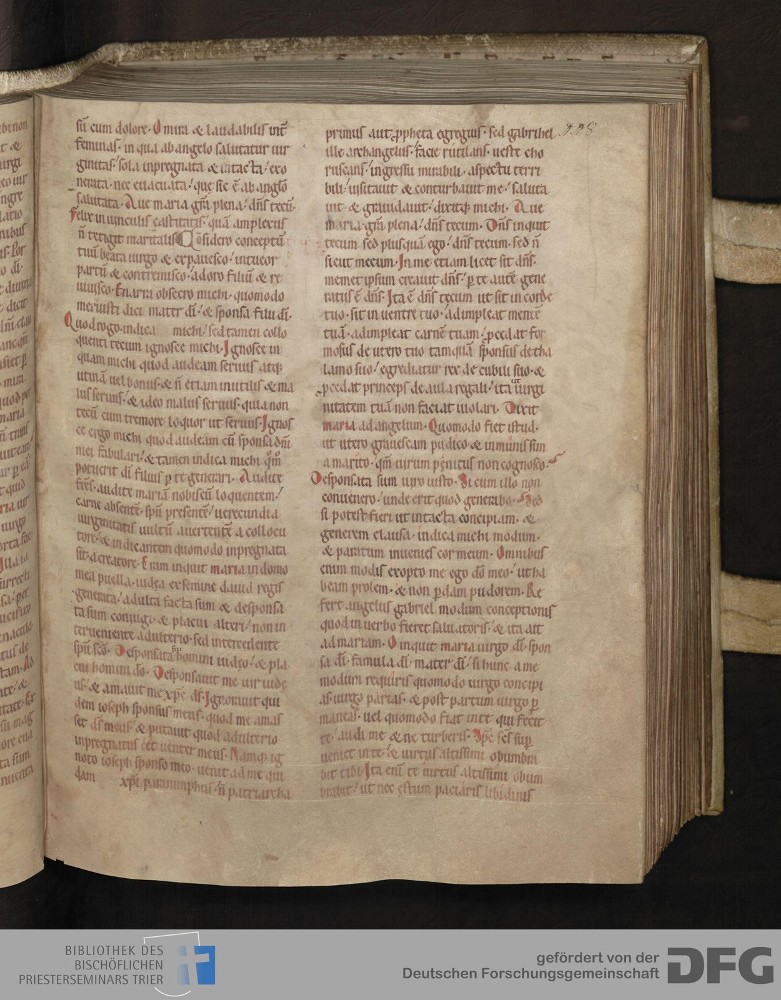 sūt cum dolore. O mira & laudabilis inť
feminas. in qua ab angelo salutatur uir
ginitas. sola inpregnata & intacta. exo
nerata. nec euacuata. que sic ē ab anglo
salutata. Aue maria grā plena. dn̄s tecū.
Felix in uinculis castitatis. quā amplexus
n̄ tetigit maritalis. Cōsidero conceptū
tuū beata uirgo & expauesco. intueor
partū & contremisco. adoro filiū & re
uiuisco. Enarra obsecro michi. quomodo
meruisti dici mater dī. & sponsa filii dī.
Quod rogo indica michi. sed tamen collo
quenti tecum ignosce michi. Ignosce in
quam michi quod audeam seruus atq;
utinā uel bonus. & n̄ etiam inutilis & ma
lus seruus. & ideo malus seruus. quia non
tecū cum tremore loquor ut seruus. Ignos
ce ergo michi quod audeam cū sponsa dn̄i
mei fabulari. & tamen indica michi qm̄
potuerit dī filius p te generari. Audite
frēs. audite mariā nobiscū loquentem.
carne absentē. spū presentē. uerecundia
uirginitatis uultū auertentē a collocu
tore. & indicantem quomodo inpregnata
sit a creatore. Eram inquit maria in domo
mea puella. iudea ex semine dauid regis
generata. adulta facta sum & desponsa
ta sum coniugi. & placui alteri. non in
terueniente adulterio. sed intercedente
spū scō. Desponsata homini iudeo. & pla
cui homini dō. Desponsauit me uir iude
us. & amauit me xp̄c dī. Ignorauit qui
dem ioseph sponsus meus. quod me amas
set dī meus. & putauit quod adulterio
inpregnatus eēt uenter meus. Namq; ig
noto ioseph sponso meo. uenit ad me qui
dam xp̄i paranimphus. n̄ patriarcha
primus aut ppheta egregius. sed gabrihel
ille archangelus. facie rutilans. ueste cho
ruscans. ingressu mirabili. aspectu terri
bili. uisitauit & conturbauit me. saluta
uit & grauidauit. dixitq; michi. Aue
maria grā plena. dn̄s tecum. Dn̄s inquit
tecum sed plusquā ego. dn̄s tecum. sed n̄
sicut mecum. In me etiam licet sit dn̄s.
memet ipsum creauit dn̄s. p te autē gene
ratus ē dn̄s. Ita ē dn̄s tecum ut sit in corde
tuo. sit in uentre tuo. adimpleat mentē
tuā. adimpleat carnē tuam. pcedat for
mosus de utero tuo tamquā sponsus de tha
lamo suo. egrediatur rex de cubili suo. &
pcedat princeps de aula regali. ita ut uirgi
nitatem tuā non faciat uiolari. Dixit
maria ad angelum. Quomodo fiet istud.
ut utero grauescam pudico & inmunissim
a marito. qm̄ uirum penitus non cognosco.
Desponsata sum uiro iusto. Si cum illo non
conuenero. unde erit quod generabo. Sed
si potest fieri ut intacta concipiam. &
generem clausa. indica michi modum.
& paratum inuenies cor meum. Omnibus
enim modis exopto me ego dō meo. ut ha
beam prolem. & non pdam pudorem. Re
fert angelus gabriel modum conceptionis
quod in uerbo fieret saluatoris. & ita ait
ad mariam. O inquit maria uirgo dī spon
sa dī. famula dī. mater dī. si hunc a me
modum requiris quomodo uirgo concipi
as. uirgo parias. & post partum uirgo p
maneas. uel quomodo fiat in te qui fecit
te. audi me & ne turberis. Sp̄c scs sup
ueniet in te. & uirtus altissimi obumbra
bit tibi. Ita enī te uirtus altissimi obum
brabit. ut nec estum paciaris libidinis
BIBLIOTHEK DES
BISCHÖFLICHEN
PRIESTERSEMINARS TRIER
gefördert von der
Deutschen Forschungsgemeinschaft
DFG